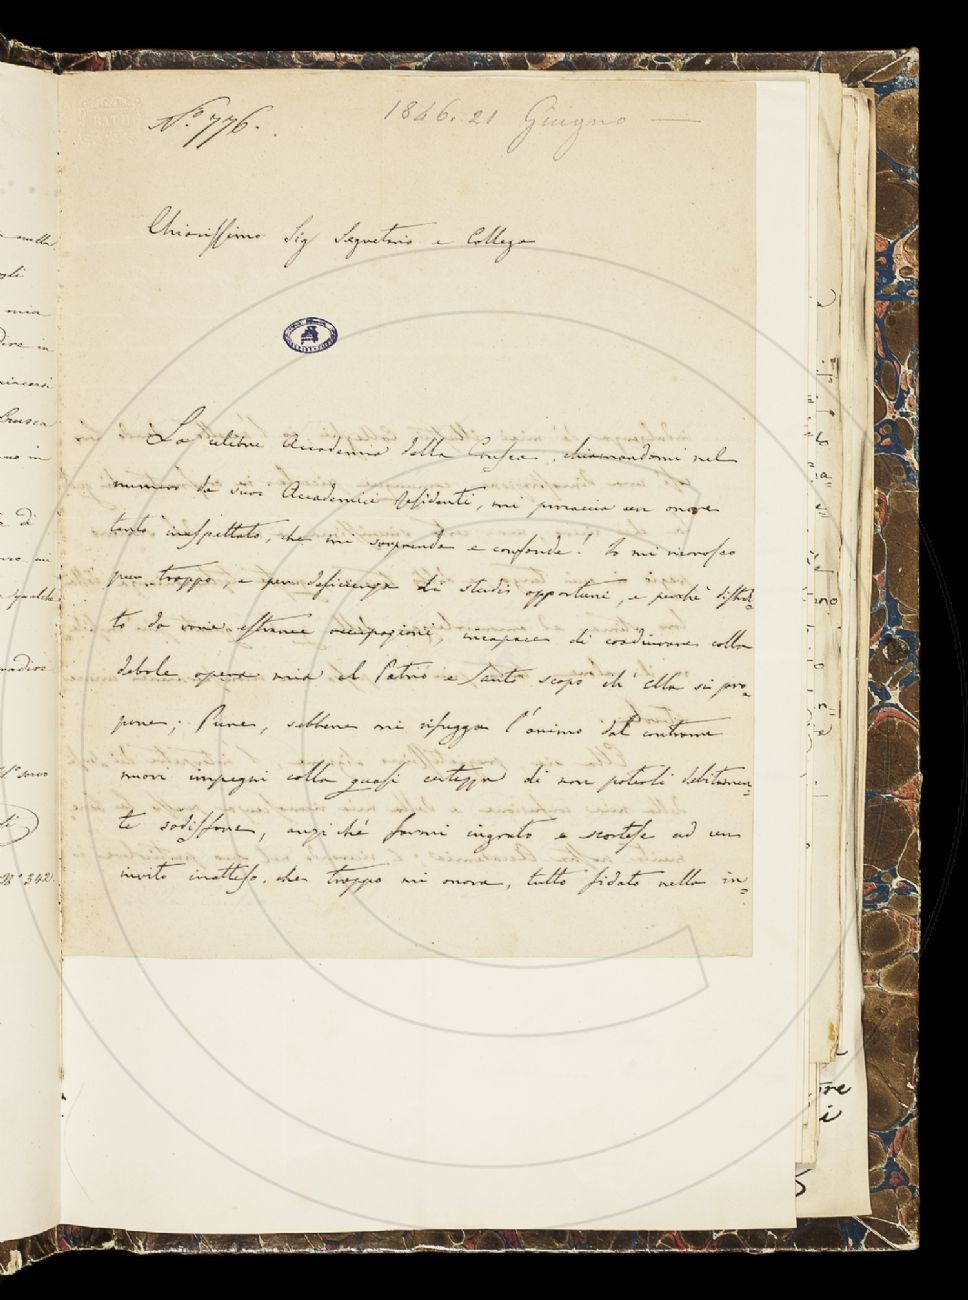 N.º 776.
1846. 21 Giugno
Chiarissimo Sig Segretario e Collega
La celebre Accademia della Crusca, chiamandomi nel
numero de suoi Accademici residenti, mi procaccia un onore
tanto inaspettato, che mi sorprende e confonde! Io mi riconosco
pur troppo, e per deficienza di studii opportuni, e perchè distrat=
to da varie estranee occupazioni, incapace di coadiuvare colla
debole opera mia el Patrio e Santo scopo ch' Ella si pro=
pone; Pure, sebbene mi rifugga l'animo dal contrarre
nuovi impegni colla quasi certezza di non poterli debitamen=
te sodisfare, anzi chè farmi ingrato e scortese ad un
invito inatteso, che troppo mi onora, tutto fidato nella in=
nulla
ogli
mia
dire in
Crusca
no in
di
qualche
N.º 342.